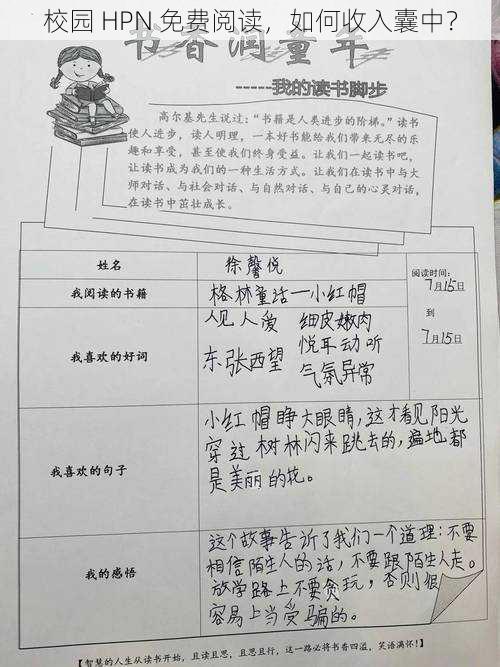 校园 HPN 免费阅读，如何收入囊中？
书香润童年
-----我的读书脚步
高尔基先生说过：“书籍是人类进步的阶梯。”读书
使人进步，读人明理，一本好书能给我们带来无尽的乐
趣和享受，甚至使我们终身受益。让我们一起读书吧，
让读书成为我们的一种生活方式。让我们在读书中与大
师对话、与社会对话、与自然对话、与自己的心灵对话，
在读书中茁壮成长。
姓名
徐馨悦
阅读时间：
7月15日
到
7月15日
我阅读的书籍
格林童话一小红帽
我喜欢的好词
人见人爱 细皮嫩肉
东张西望 悦耳动听
气氛异常
我喜欢的句子
小红帽睁大眼睛，这才看见阳光
穿过树林闪来跳去的，遍地都
是美丽的花。
我的感悟
这个故事告诉了我们一个道理：不要
相信陌生人的话，不要跟陌生人走。
放学路上不要贪玩，否则很
容易上当受骗的。
【智慧的人生从读书开始，且读且思，且思且行，这一路必将书香四溢，笑语满怀！】